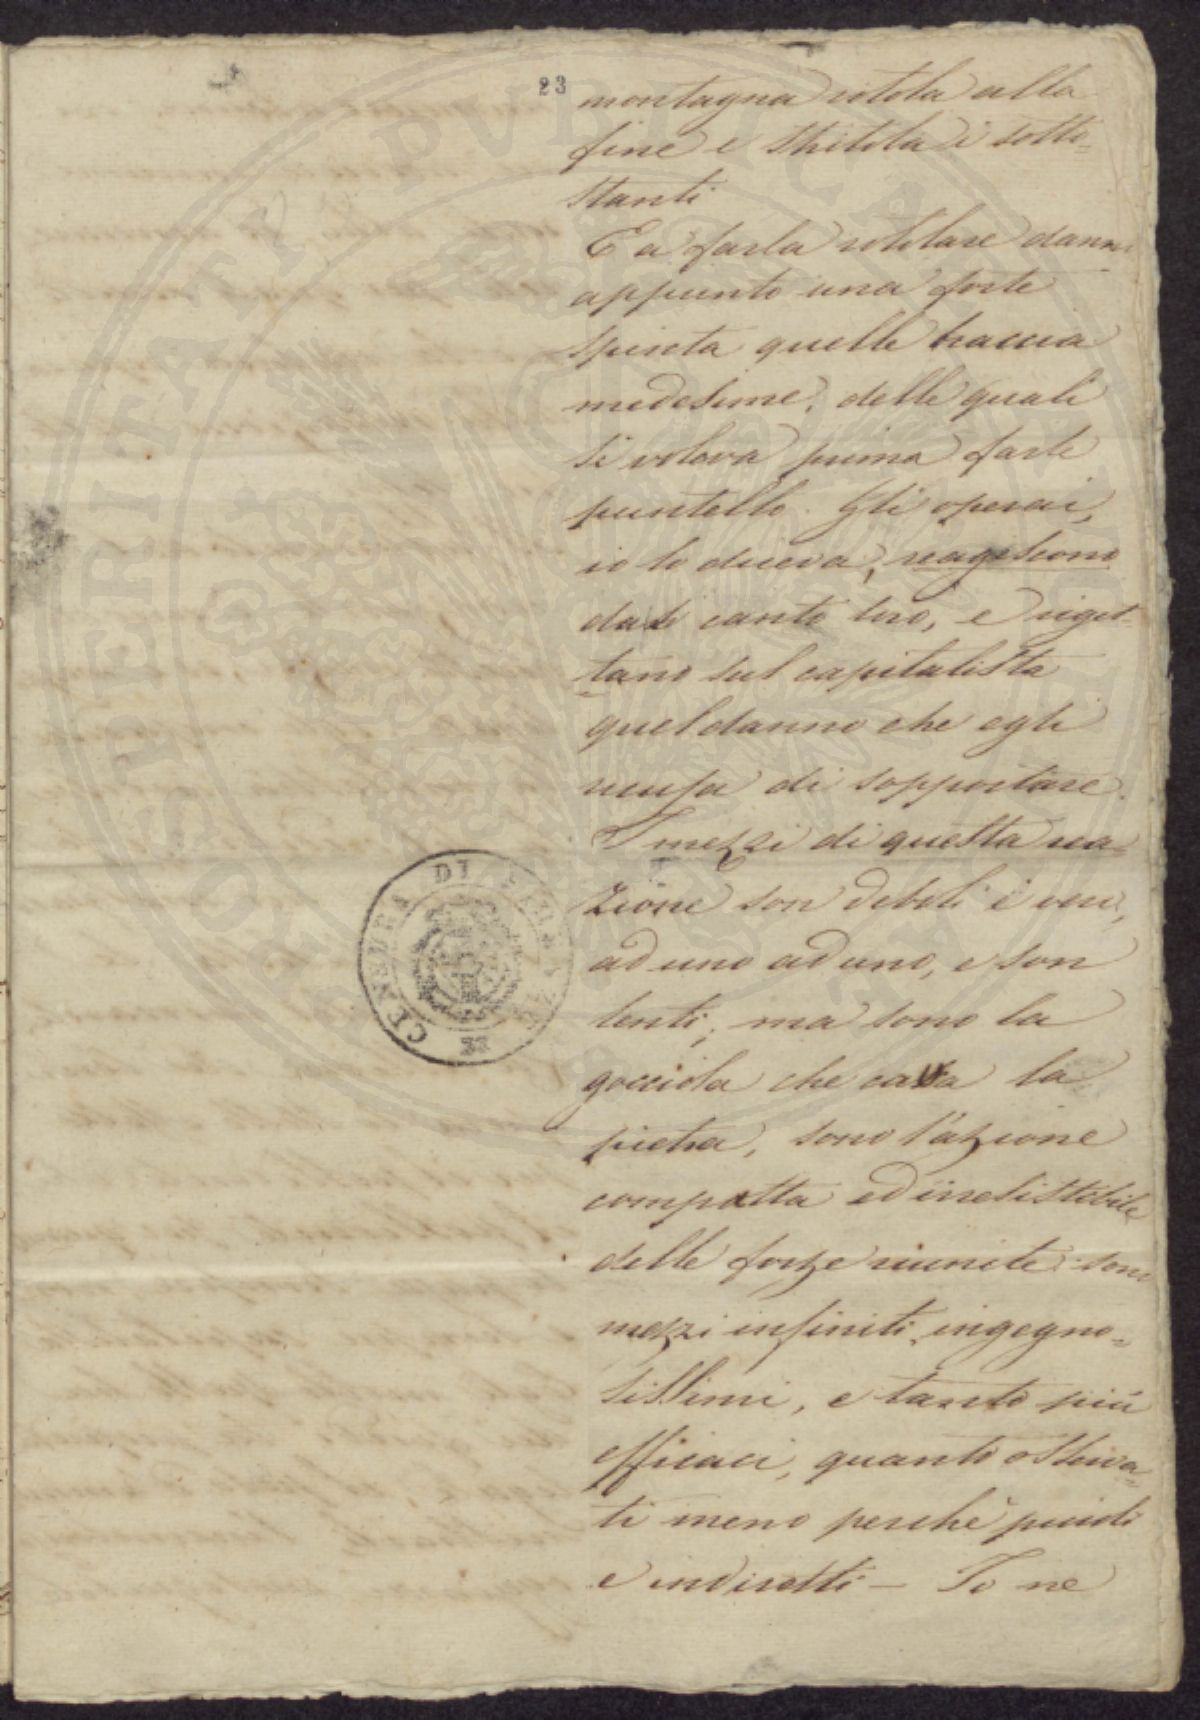 23
montagna rotola alla
fine e stritola i sotto=
stanti
E a farla rotolare danno
appunto una forte
spinta quelle braccia
medesime, delle quali
si voleva prima farle
puntello. Gli operai,
io lo diceva, reagiscono
dal canto loro, e riget=
tano sul capitalista
quel danno che egli
ricusa di sopportare.
I mezzi di questa rea=
zione son deboli è vero,
ad uno ad uno, e son
lenti, ma sono la
gocciola che cava la
pietra, sono l'azione
compatta ed irresistibile
delle forze riunite: sono
mezzi infiniti, ingegno=
sissimi, e tanto più
efficaci, quanto osserva=
ti meno perchè piccoli
e indiretti — Io ne
CENSURA DI